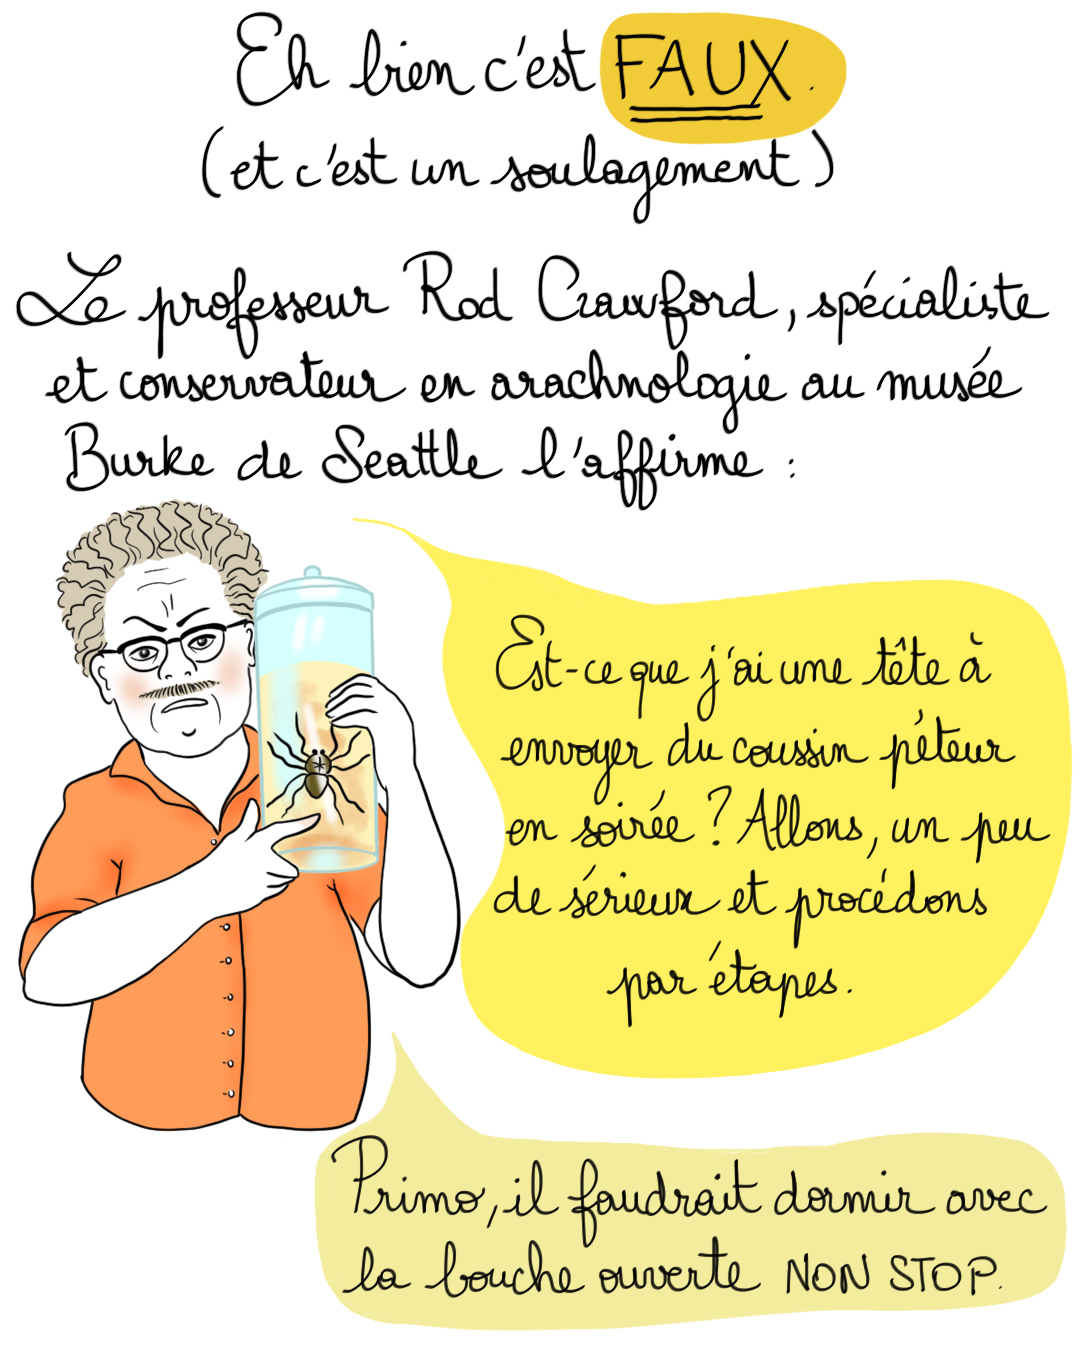 Eh bien c'est FAUX.
(et c'est un soulagement)
Le professeur Rod Crawford, spécialiste
et conservateur en arachnologie au musée
Burke de Seattle l'affirme :
Est-ce que j'ai une tête à
envoyer du coussin péteur
en soirée ? Allons, un peu
de sérieux et procédons
par étapes.
Primo, il faudrait dormir avec
la bouche ouverte NON STOP.